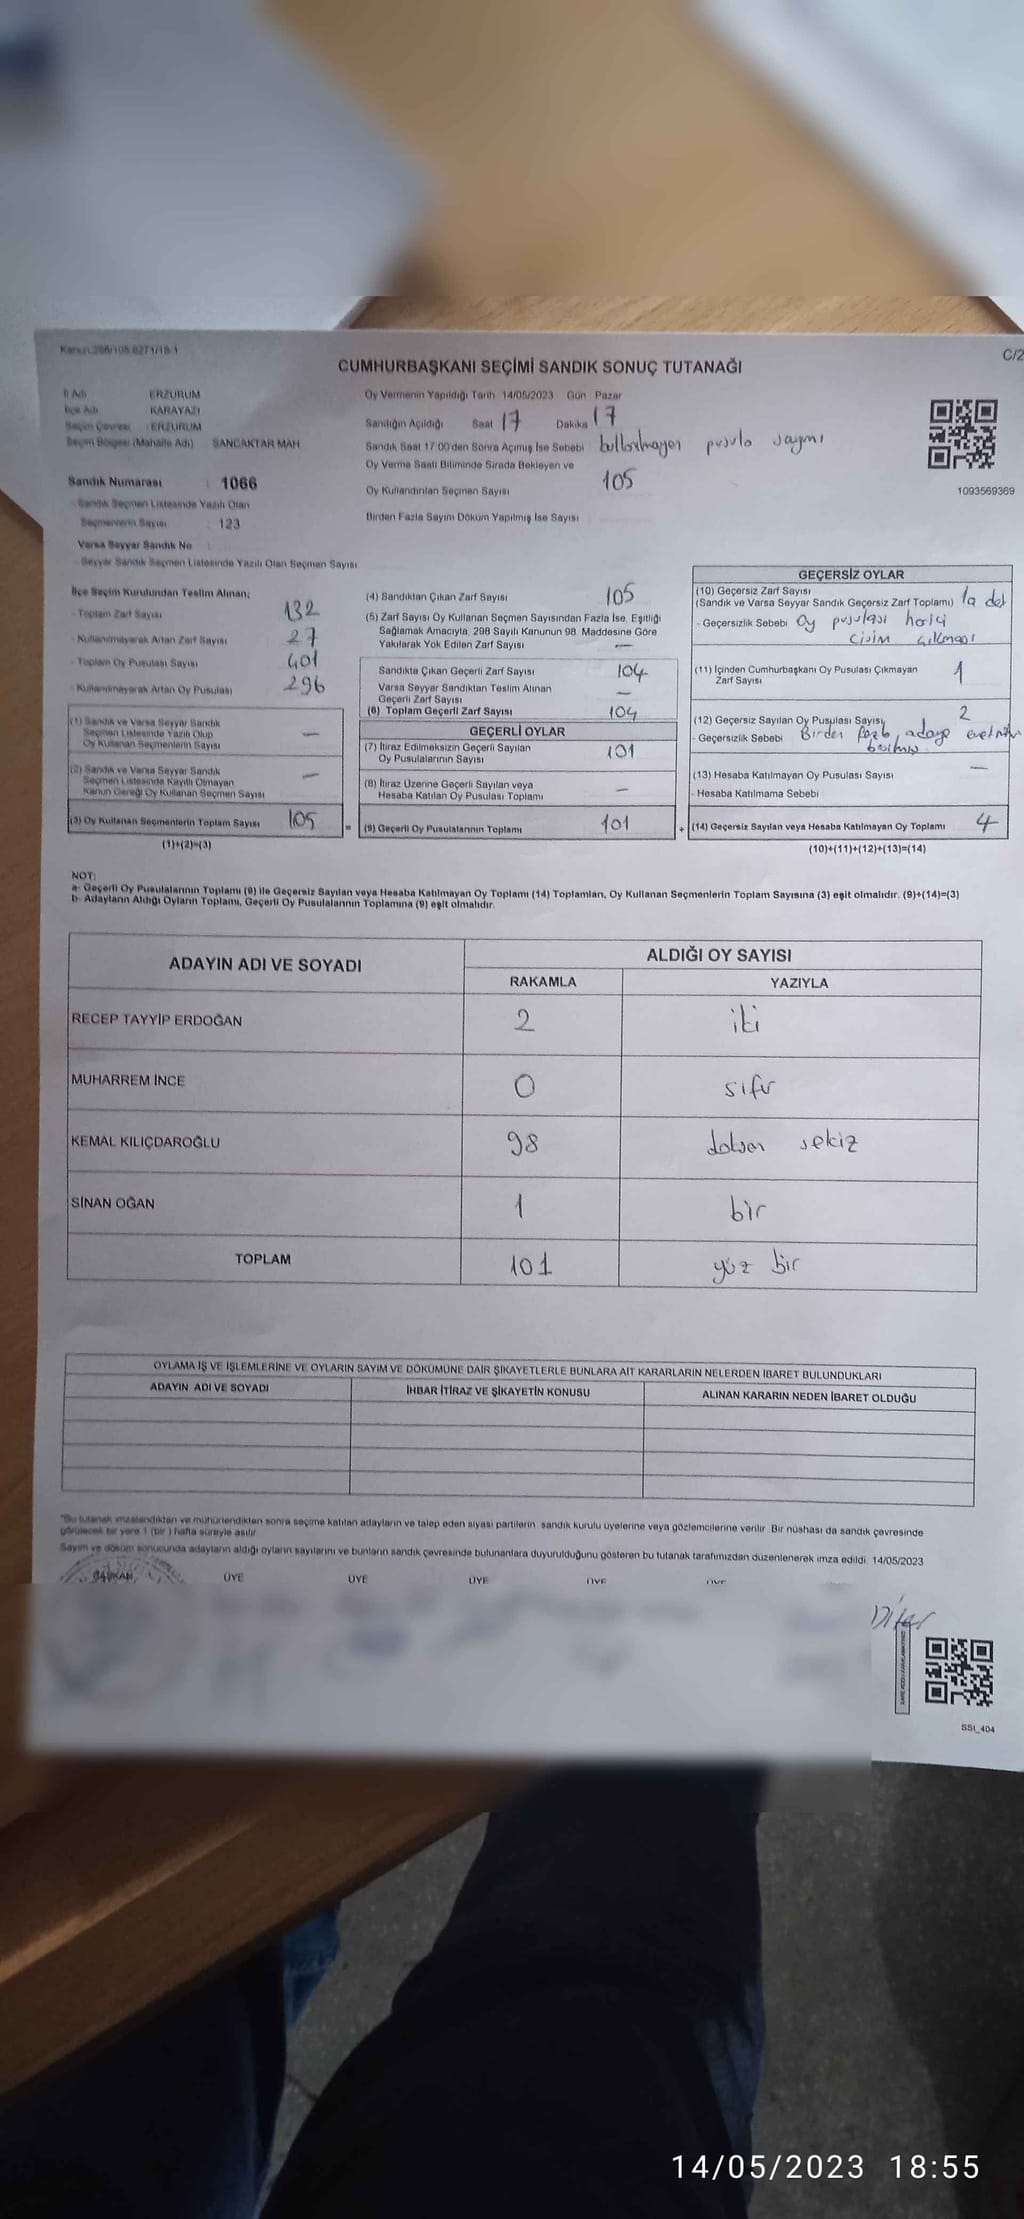 Kanun:298/105,6271/18-1
C/2
CUMHURBAŞKANI SEÇİMİ SANDIK SONUÇ TUTANAĞI
İl Adı ERZURUM
İlçe Adı KARAYAZI
Seçim Çevresi : ERZURUM
Seçim Bölgesi (Mahalle Adı) SANCAKTAR MAH
Sandık Numarası : 1066
- Sandık Seçmen Listesinde Yazılı Olan
Seçmenlerin Sayısı : 123
Varsa Seyyar Sandık No :
- Seyyar Sandık Seçmen Listesinde Yazılı Olan Seçmen Sayısı
Oy Vermenin Yapıldığı Tarih 14/05/2023 Gün Pazar
Sandığın Açıldığı Saat 17 Dakika 17
Sandık Saat 17:00'den Sonra Açmış İse Sebebi kullanılmayan pusula sayımı
Oy Verme Saati Bitiminde Sırada Bekleyen ve
Oy Kullandırılan Seçmen Sayısı 105
Birden Fazla Sayım Döküm Yapılmış İse Sayısı
1093569369
İlçe Seçim Kurulundan Teslim Alınan;
- Toplam Zarf Sayısı 132
- Kullanılmayarak Artan Zarf Sayısı 27
- Toplam Oy Pusulası Sayısı 401
- Kullanılmayarak Artan Oy Pusulası 296
(1) Sandık ve Varsa Seyyar Sandık
Seçmen Listesinde Yazılı Olup
Oy Kullanan Seçmenlerin Sayısı —
(2) Sandık ve Varsa Seyyar Sandık
Seçmen Listesinde Kayıtlı Olmayan
Kanun Gereği Oy Kullanan Seçmen Sayısı —
(3) Oy Kullanan Seçmenlerin Toplam Sayısı 105
(1)+(2)=(3)
(4) Sandıktan Çıkan Zarf Sayısı 105
(5) Zarf Sayısı Oy Kullanan Seçmen Sayısından Fazla İse, Eşitliği
Sağlamak Amacıyla, 298 Sayılı Kanunun 98. Maddesine Göre
Yakılarak Yok Edilen Zarf Sayısı —
Sandıkta Çıkan Geçerli Zarf Sayısı 104
Varsa Seyyar Sandıktan Teslim Alınan
Geçerli Zarf Sayısı —
(6) Toplam Geçerli Zarf Sayısı 104
GEÇERLİ OYLAR
(7) İtiraz Edilmeksizin Geçerli Sayılan
Oy Pusulalarının Sayısı 101
(8) İtiraz Üzerine Geçerli Sayılan veya
Hesaba Katılan Oy Pusulası Toplamı —
= (9) Geçerli Oy Pusulalarının Toplamı 101
GEÇERSİZ OYLAR
(10) Geçersiz Zarf Sayısı
(Sandık ve Varsa Seyyar Sandık Geçersiz Zarf Toplamı) 1a det
- Geçersizlik Sebebi Oy pusulası harici
cisim çıkması
(11) İçinden Cumhurbaşkanı Oy Pusulası Çıkmayan
Zarf Sayısı 1
(12) Geçersiz Sayılan Oy Pusulası Sayısı 2
- Geçersizlik Sebebi Birden fazla adaya
(13) Hesaba Katılmayan Oy Pusulası Sayısı —
- Hesaba Katılmama Sebebi
+ (14) Geçersiz Sayılan veya Hesaba Katılmayan Oy Toplamı 4
(10)+(11)+(12)+(13)=(14)
NOT:
a- Geçerli Oy Pusulalarının Toplamı (9) ile Geçersiz Sayılan veya Hesaba Katılmayan Oy Toplamı (14) Toplamları, Oy Kullanan Seçmenlerin Toplam Sayısına (3) eşit olmalıdır. (9)+(14)=(3)
b- Adayların Aldığı Oyların Toplamı, Geçerli Oy Pusulalarının Toplamına (9) eşit olmalıdır.
ADAYIN ADI VE SOYADI ALDIĞI OY SAYISI
RAKAMLA YAZIYLA
RECEP TAYYİP ERDOĞAN 2 iki
MUHARREM İNCE 0 sıfır
KEMAL KILIÇDAROĞLU 98 doksan sekiz
SİNAN OĞAN 1 bir
TOPLAM 101 yüz bir
OYLAMA İŞ VE İŞLEMLERİNE VE OYLARIN SAYIM VE DÖKÜMÜNE DAİR ŞİKAYETLERLE BUNLARA AİT KARARLARIN NELERDEN İBARET BULUNDUKLARI
ADAYIN ADI VE SOYADI İHBAR İTİRAZ VE ŞİKAYETİN KONUSU ALINAN KARARIN NEDEN İBARET OLDUĞU
*Bu tutanak imzalandıktan ve mühürlendikten sonra seçime katılan adayların ve talep eden siyasi partilerin sandık kurulu üyelerine veya gözlemcilerine verilir. Bir nüshası da sandık çevresinde
görülecek bir yere 1 (bir ) hafta süreyle asılır.
Sayım ve döküm sonucunda adayların aldığı oyların sayılarını ve bunların sandık çevresinde bulunanlara duyurulduğunu gösteren bu tutanak tarafımızdan düzenlenerek imza edildi. 14/05/2023
BAŞKAN ÜYE ÜYE ÜYE ÜYE ÜYE
SSI_404
14/05/2023 18:55